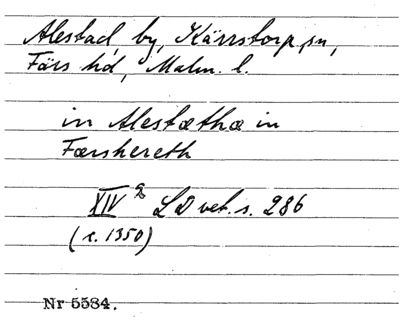 Alestad, by, Kärrstorp sn,
Färs hd, Malm. l.
in Alestætha in
Færshereth
XIV 2 LD vet. s. 286
(c. 1350)
Nr 5534.